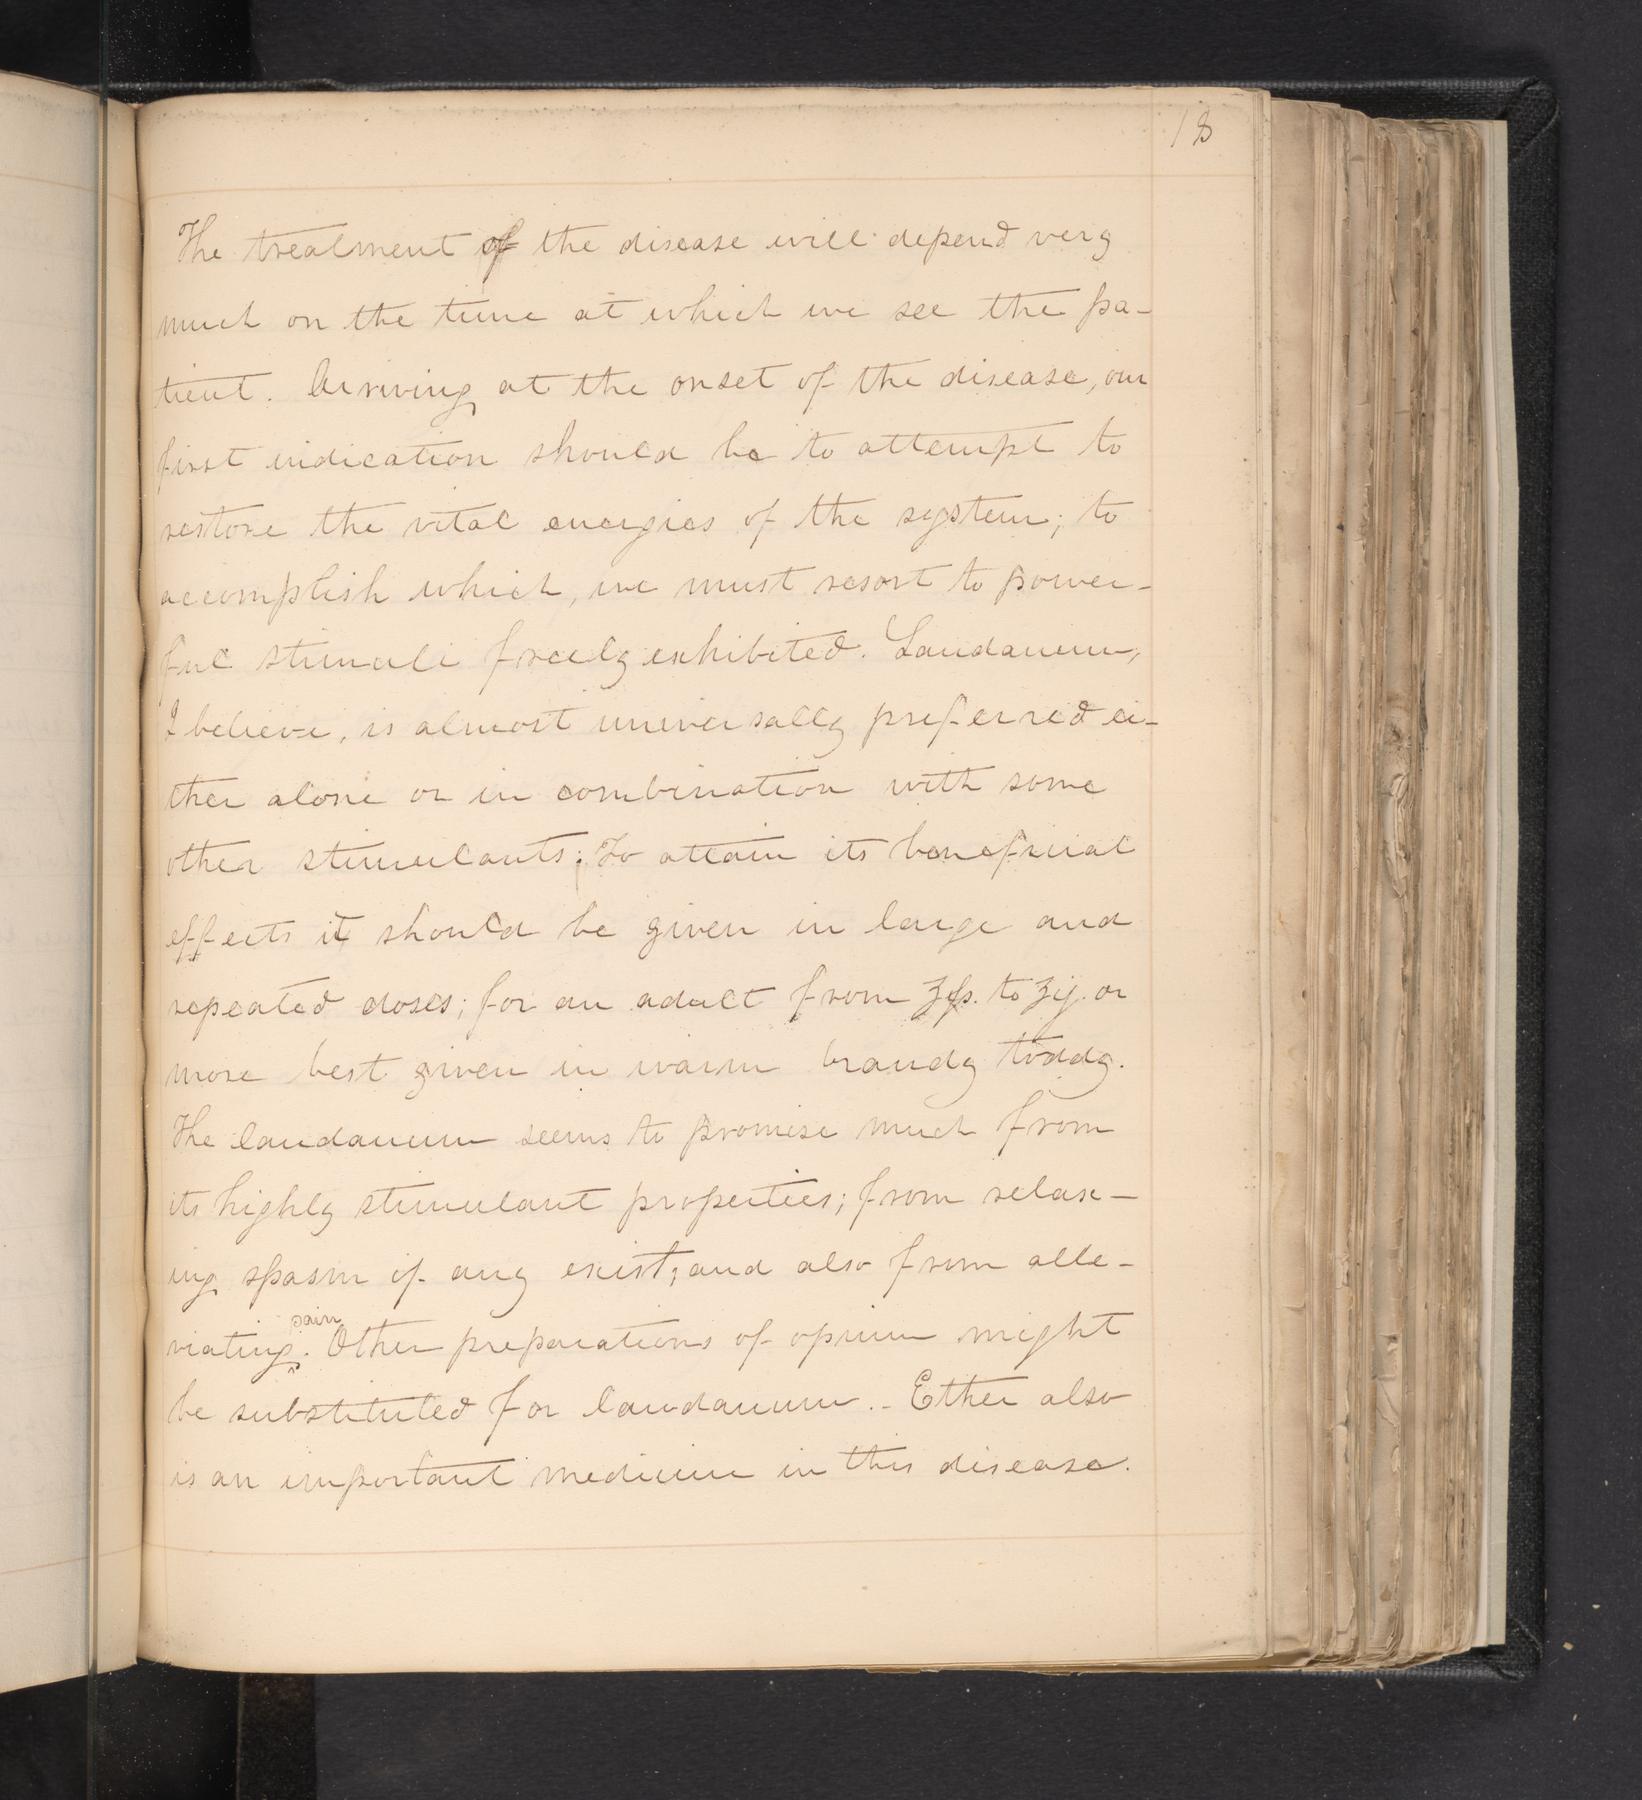 18
The treatment of the disease will depend very
much on the time at which we see the pa-
tient. Arriving at the onset of the disease, our
first indication should be to attempt to
restore the vital energies of the system; to
accomplish which, we must resort to power-
ful stimuli freely exhibited. Laudanum,
I believe, is almost universally preferred ei-
ther alone or in combination with some
other stimulants; To attain its beneficial
effects it should be given in large and
repeated doses; for an adult from ʒſs. to ʒij. or
more best given in warm brandy toddy.
The laudanum seems to promise much from
its highly stimulant properties; from relax-
ing spasm if any exist; and also from alle-
viating pain. Other preparations of opium might
be substituted for laudanum.- Ether also
is an important medicine in this disease.